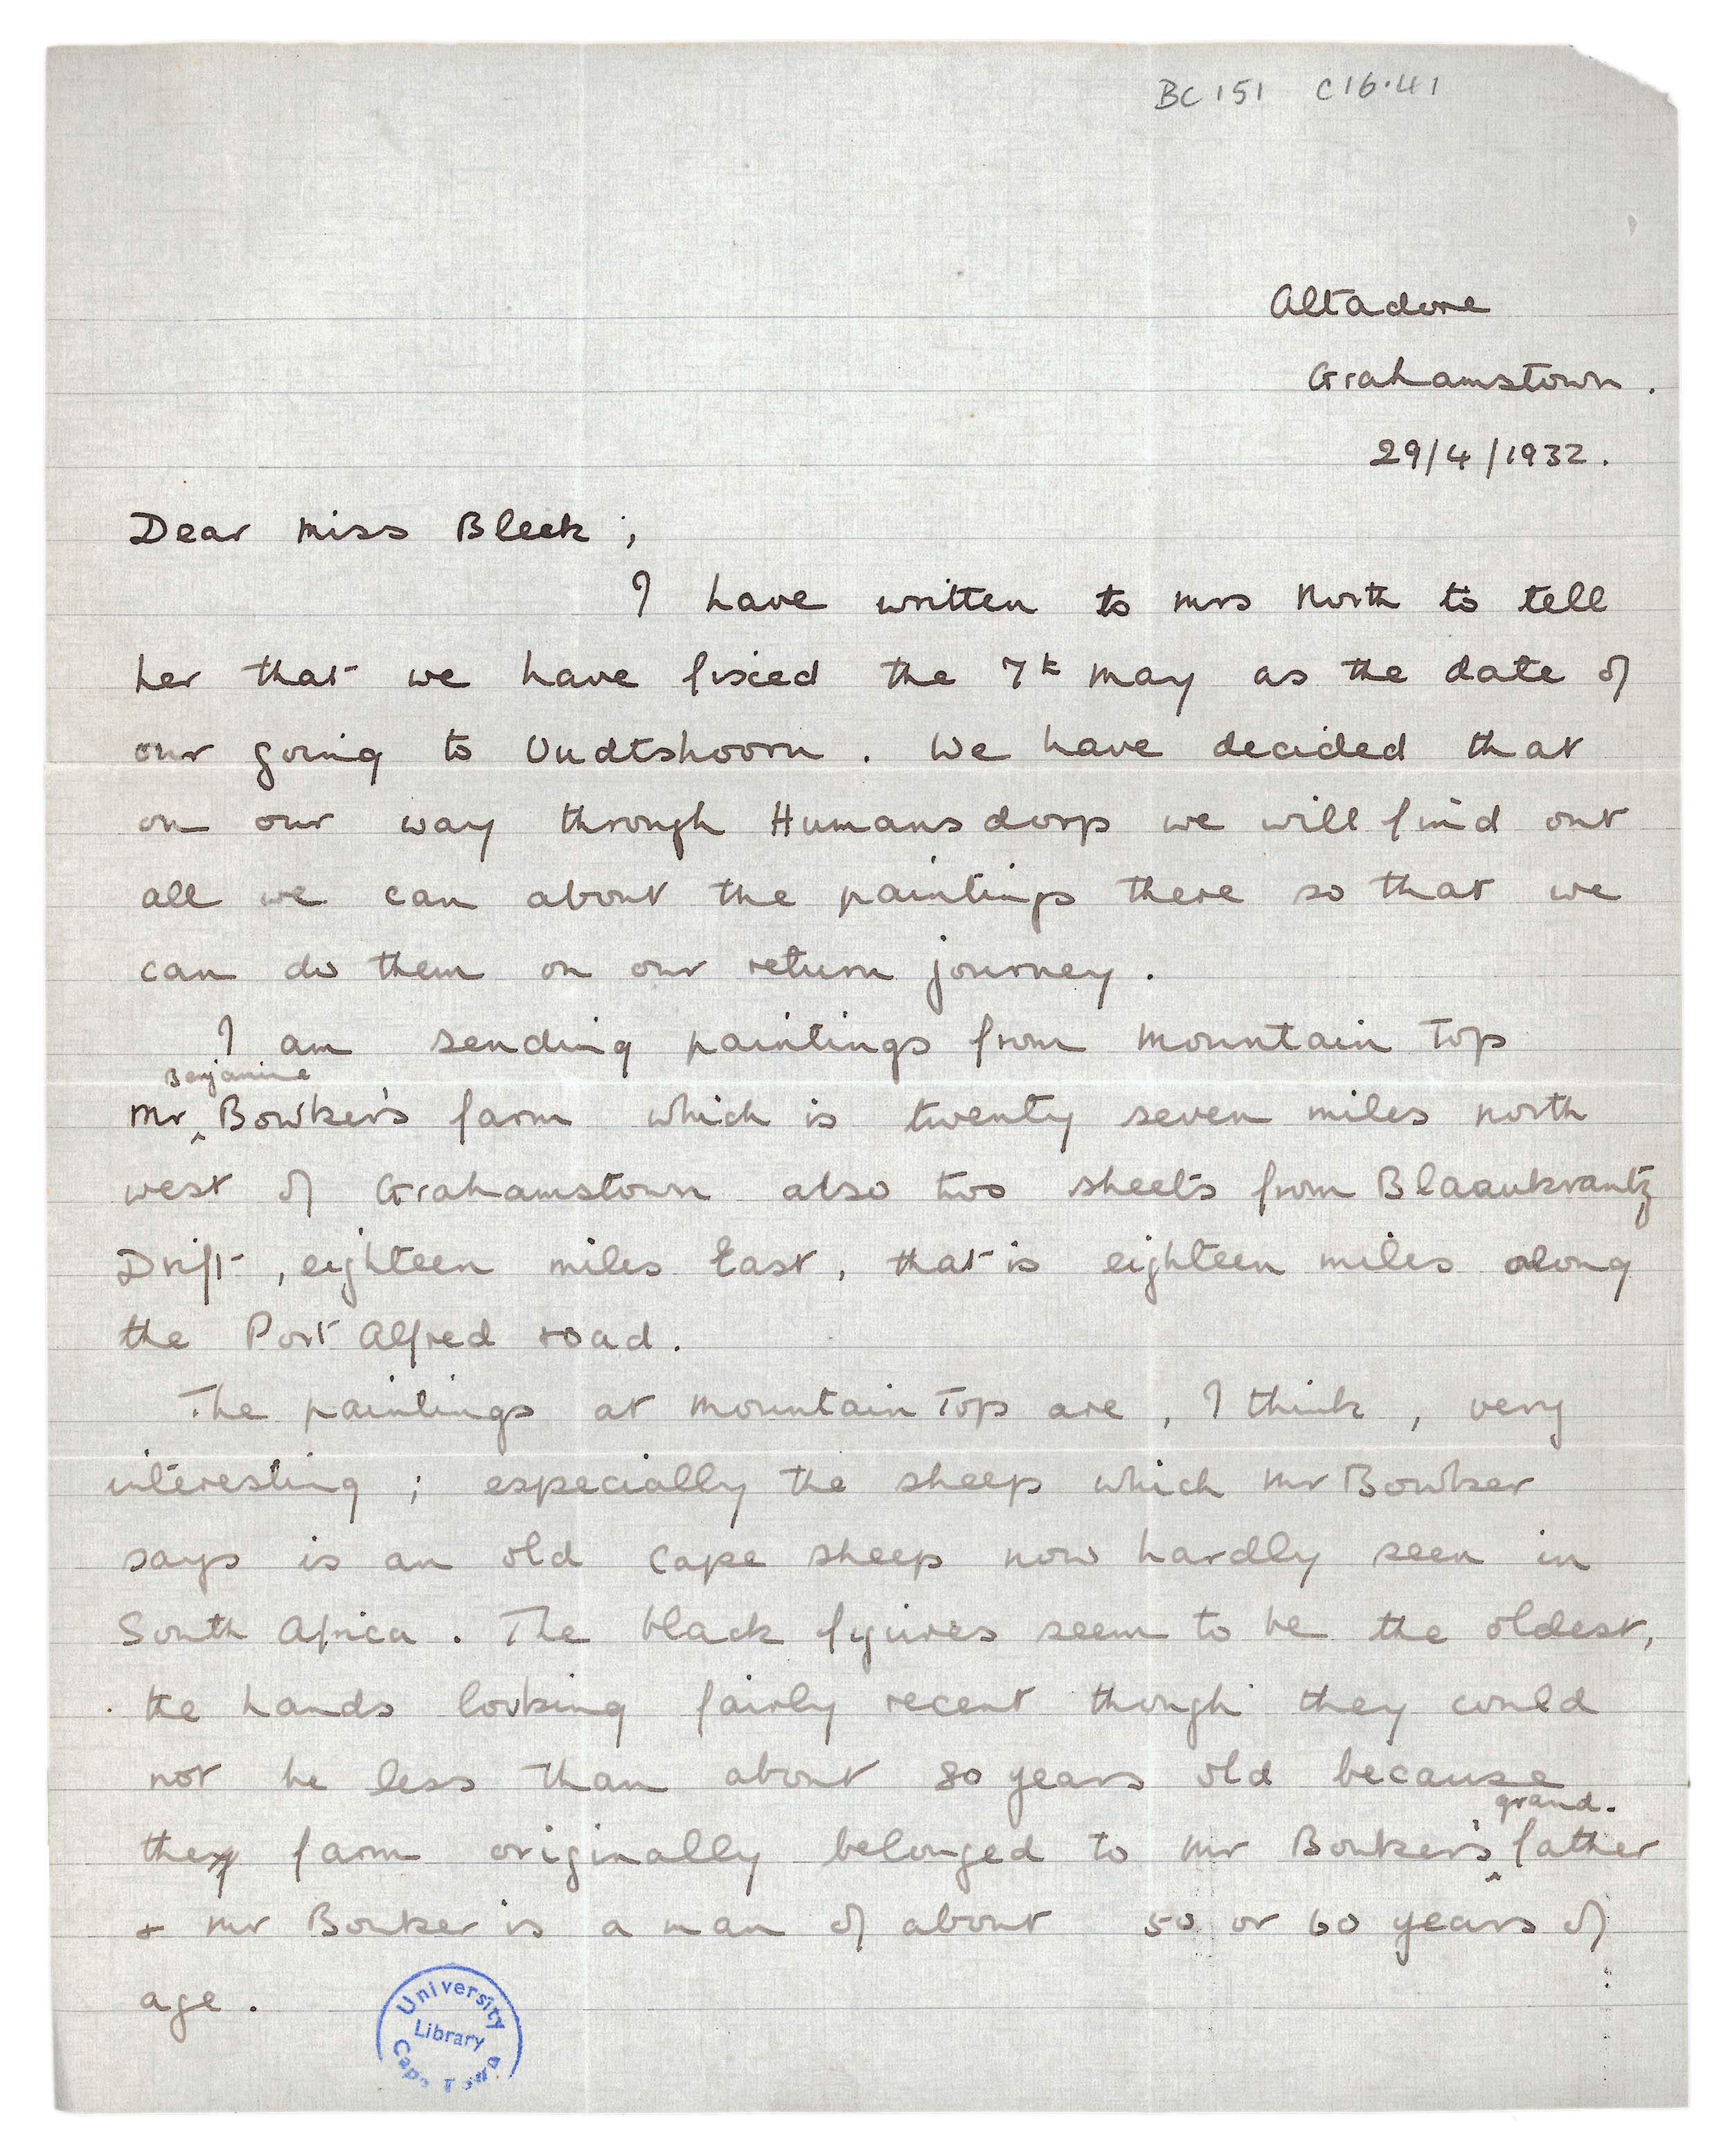 BC 151 C16.41
Altadore
Grahamstown.
29/4/1932.
Dear Miss Bleek;
I have written to Mrs North to tell
her that we have fixed the 7th May as the date of
our going to Oudtshoorn. We have decided that
on our way through Humansdorp we will find out
all we can about the paintings there so that we
can do them on our return journey.
I am sending paintings from Mountain Top
Benjamine
Mr ^ Bowker's farm which is twenty seven miles north
west of Grahamstown also two sheets from Blaaukrantz
Drift, eighteen miles East, that is eighteen miles along
the Port Alfred road.
The paintings at Mountain Top are, I think, very
interesting; especially the sheep which Mr Bowker
says is an old Cape sheep now hardly seen in
South Africa. The black figures seem to be the oldest,
the hands looking fairly recent though they could
not be less than about 80 years old because
grand-
the farm originally belonged to Mr Bowker's ^ father
& Mr Bowker is a man of about 50 or 60 years of
age.
University
Library
Cape Town